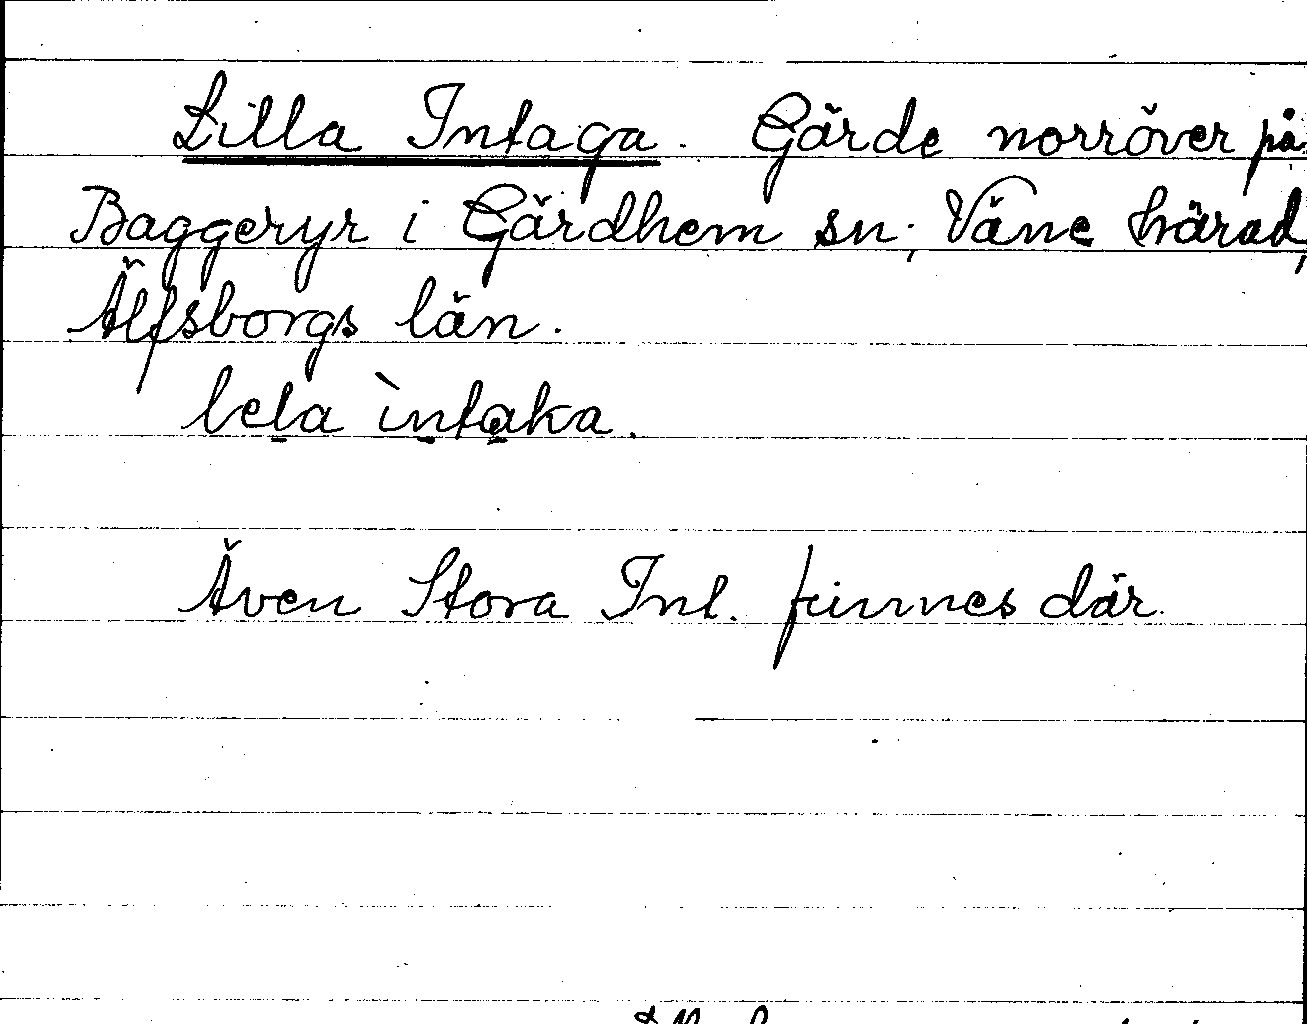 Lilla Intaga. Gärde norröver på
Baggeryr i Gärdhem sn; Väne härad,
Älfsborgs län.
lela ìntaka.
Även Stora Int. finnes där.